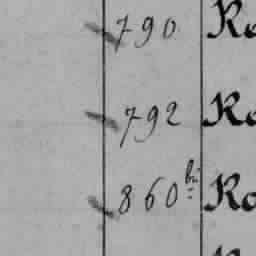 790 Ro
792 Ro
860 bis Ro